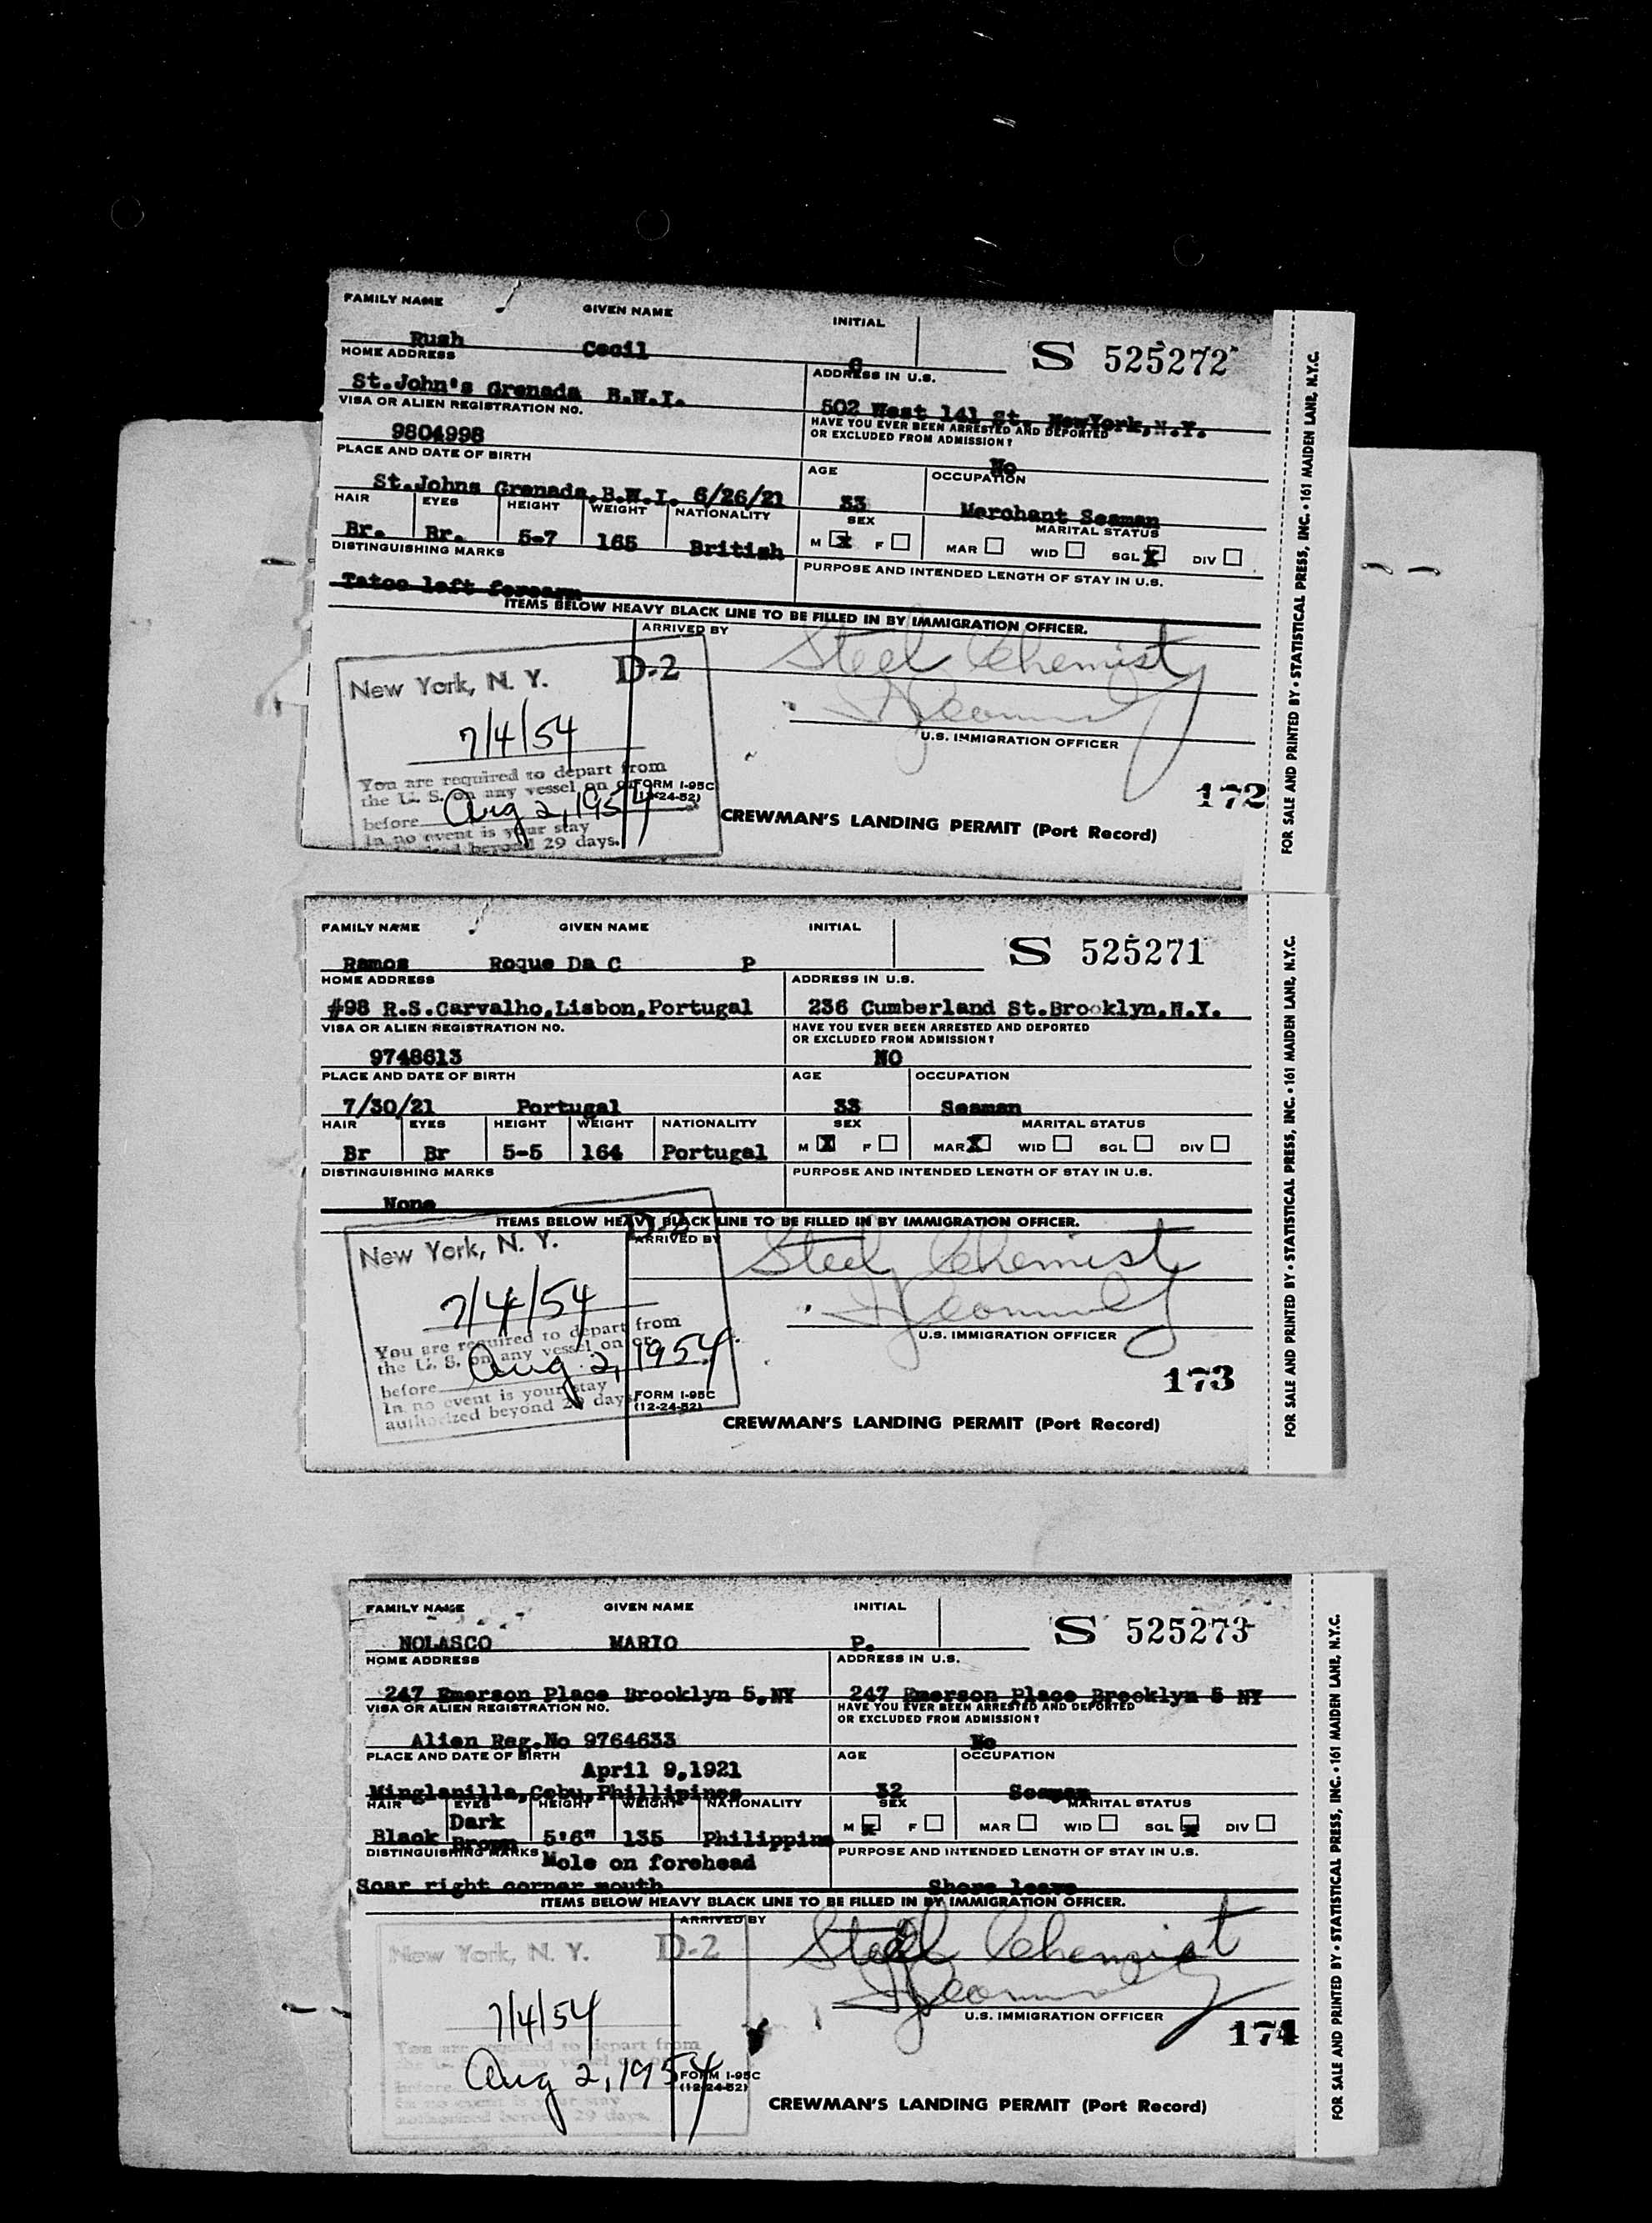 FAMILY NAME GIVEN NAME INITIAL
S 525272
Rush Cecil
HOME ADDRESS ADDRESS IN U.S.
St.John's Grenada B.W.I. 502 West 141 St. NewYork,N.Y.
VISA OR ALIEN REGISTRATION NO. HAVE YOU EVER BEEN ARRESTED AND DEPORTED
OR EXCLUDED FROM ADMISSION?
9804998 No
PLACE AND DATE OF BIRTH AGE OCCUPATION
St.Johns Grenada,B.W.I. 6/26/21 33 Merchant Seaman
HAIR EYES HEIGHT WEIGHT NATIONALITY SEX MARITAL STATUS
Br. Br. 5-7 165 British M X F MAR WID SGL X DIV
DISTINGUISHING MARKS PURPOSE AND INTENDED LENGTH OF STAY IN U.S.
Tatoo left forearm
ITEMS BELOW HEAVY BLACK LINE TO BE FILLED IN BY IMMIGRATION OFFICER.
ARRIVED BY
New York, N. Y. D-2 Steel Chemist
7/4/54
U.S. IMMIGRATION OFFICER
You are required to depart from
the U. S. on any vessel on or
before Aug 2, 1954
In no event is your stay
beyond 29 days.
FORM I-95C
(12-24-52)
172
CREWMAN'S LANDING PERMIT (Port Record)
FOR SALE AND PRINTED BY • STATISTICAL PRESS, INC. • 161 MAIDEN LANE, N.Y.C.
FAMILY NAME GIVEN NAME INITIAL
S 525271
Ramos Roque Da C P
HOME ADDRESS ADDRESS IN U.S.
#98 R.S.Carvalho,Lisbon,Portugal 236 Cumberland St.Brooklyn,N.Y.
VISA OR ALIEN REGISTRATION NO. HAVE YOU EVER BEEN ARRESTED AND DEPORTED
OR EXCLUDED FROM ADMISSION?
9748613 NO
PLACE AND DATE OF BIRTH AGE OCCUPATION
7/30/21 Portugal 33 Seaman
HAIR EYES HEIGHT WEIGHT NATIONALITY SEX MARITAL STATUS
Br Br 5-5 164 Portugal M X F MAR X WID SGL DIV
DISTINGUISHING MARKS PURPOSE AND INTENDED LENGTH OF STAY IN U.S.
None
ITEMS BELOW HEAVY BLACK LINE TO BE FILLED IN BY IMMIGRATION OFFICER.
ARRIVED BY
New York, N. Y. D-2 Steel Chemist
7/4/54
U.S. IMMIGRATION OFFICER
You are required to depart from
the U. S. on any vessel on or
before Aug 2, 1954
In no event is your stay
authorized beyond 29 days.
FORM I-95C
(12-24-52)
173
CREWMAN'S LANDING PERMIT (Port Record)
FOR SALE AND PRINTED BY • STATISTICAL PRESS, INC. • 161 MAIDEN LANE, N.Y.C.
FAMILY NAME GIVEN NAME INITIAL
S 525273
NOLASCO MARIO P.
HOME ADDRESS ADDRESS IN U.S.
247 Emerson Place Brooklyn 5,NY 247 Emerson Place Brooklyn 5 NY
VISA OR ALIEN REGISTRATION NO. HAVE YOU EVER BEEN ARRESTED AND DEPORTED
OR EXCLUDED FROM ADMISSION?
Alien Reg.No 9764633 No
PLACE AND DATE OF BIRTH AGE OCCUPATION
April 9,1921
Minglanilla,Cebu,Phillipines 32 Seaman
HAIR EYES HEIGHT WEIGHT NATIONALITY SEX MARITAL STATUS
Black Dark Brown 5'6" 135 Philippine M X F MAR WID SGL X DIV
DISTINGUISHING MARKS PURPOSE AND INTENDED LENGTH OF STAY IN U.S.
Mole on forehead
Scar right corner mouth Shore leave
ITEMS BELOW HEAVY BLACK LINE TO BE FILLED IN BY IMMIGRATION OFFICER.
ARRIVED BY
New York, N. Y. D-2 Steel Chemist
7/4/54
U.S. IMMIGRATION OFFICER
You are required to depart from
the U. S. on any vessel on or
before Aug 2, 1954
In no event is your stay
authorized beyond 29 days.
FORM I-95C
(12-24-52)
174
CREWMAN'S LANDING PERMIT (Port Record)
FOR SALE AND PRINTED BY • STATISTICAL PRESS, INC. • 161 MAIDEN LANE, N.Y.C.